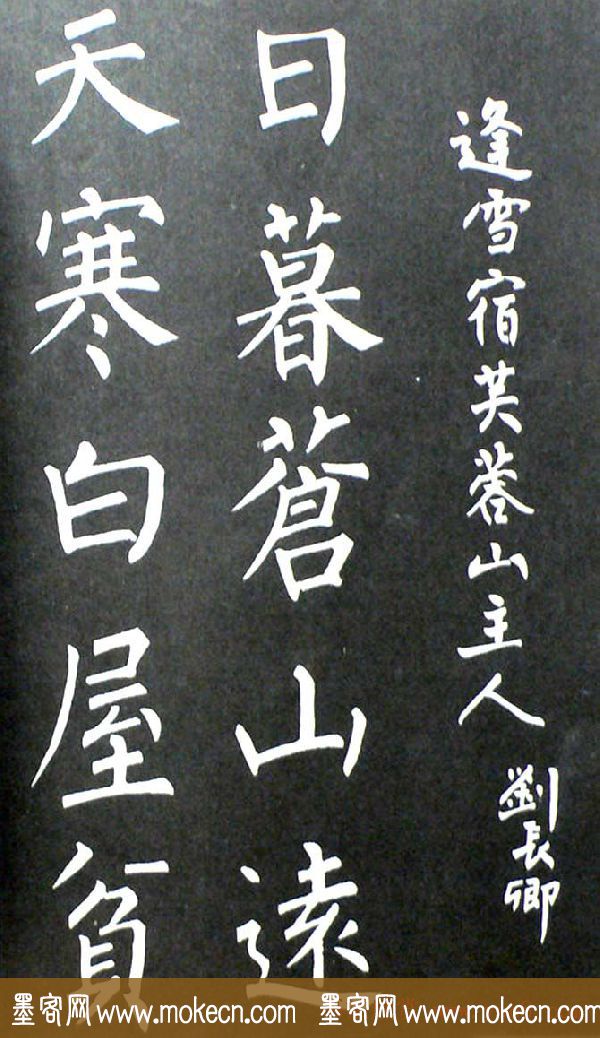 逢雪宿芙蓉山主人
劉長卿
日暮蒼山遠
天寒白屋貧
墨客网 www.mokecn.com 墨客网 www.mokecn.com